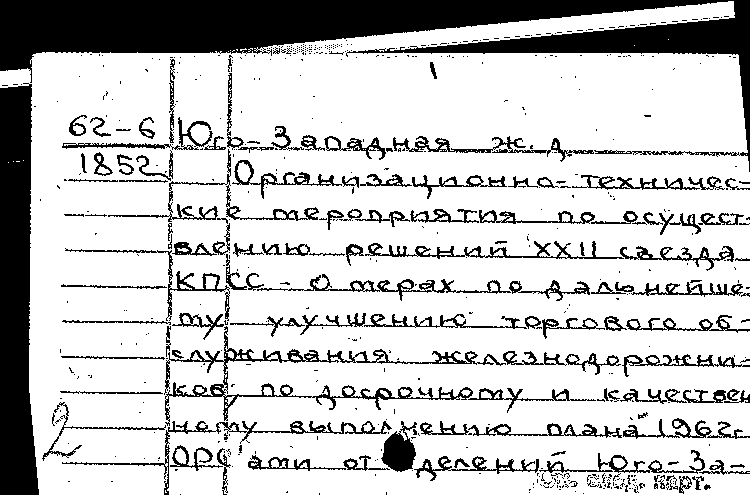 62-6
1852
Юго-Западная ж.д.
Организационно-техничес-
кие мероприятия по осущест-
влению решений XXII съезда
КПСС - О мерах по дальнейше-
му улучшению торгового об-
служивания железнодорожни-
ков, по досрочному и качествен
ному выполнению плана 1962г.
ОРС'ами отделений Юго-За-
2